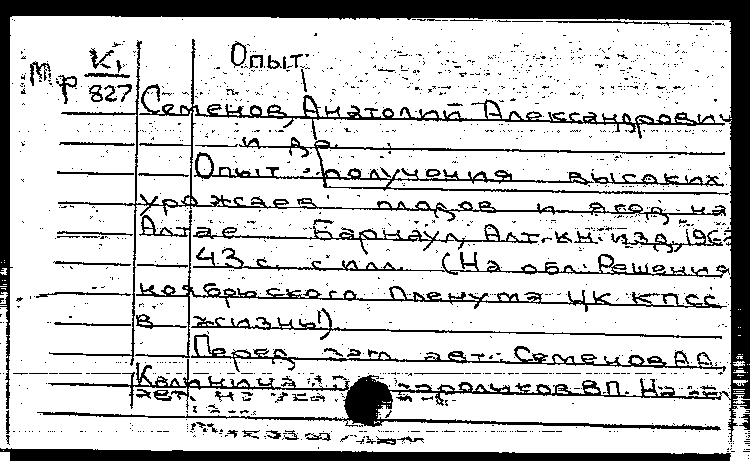 Опыт
Мф К1
827
Семенов, Анатолий Александрович
и др.
Опыт получения высоких
урожаев плодов и ягод на
Алтае. Барнаул, Алт. кн. изд., 196
43 с. с илл. (На обл.: Решения
ноябрьского Пленума ЦК КПСС
в жизнь!)
Перед загл. авт.: Семенов А.А,
Калинина В.П. На
авт. не